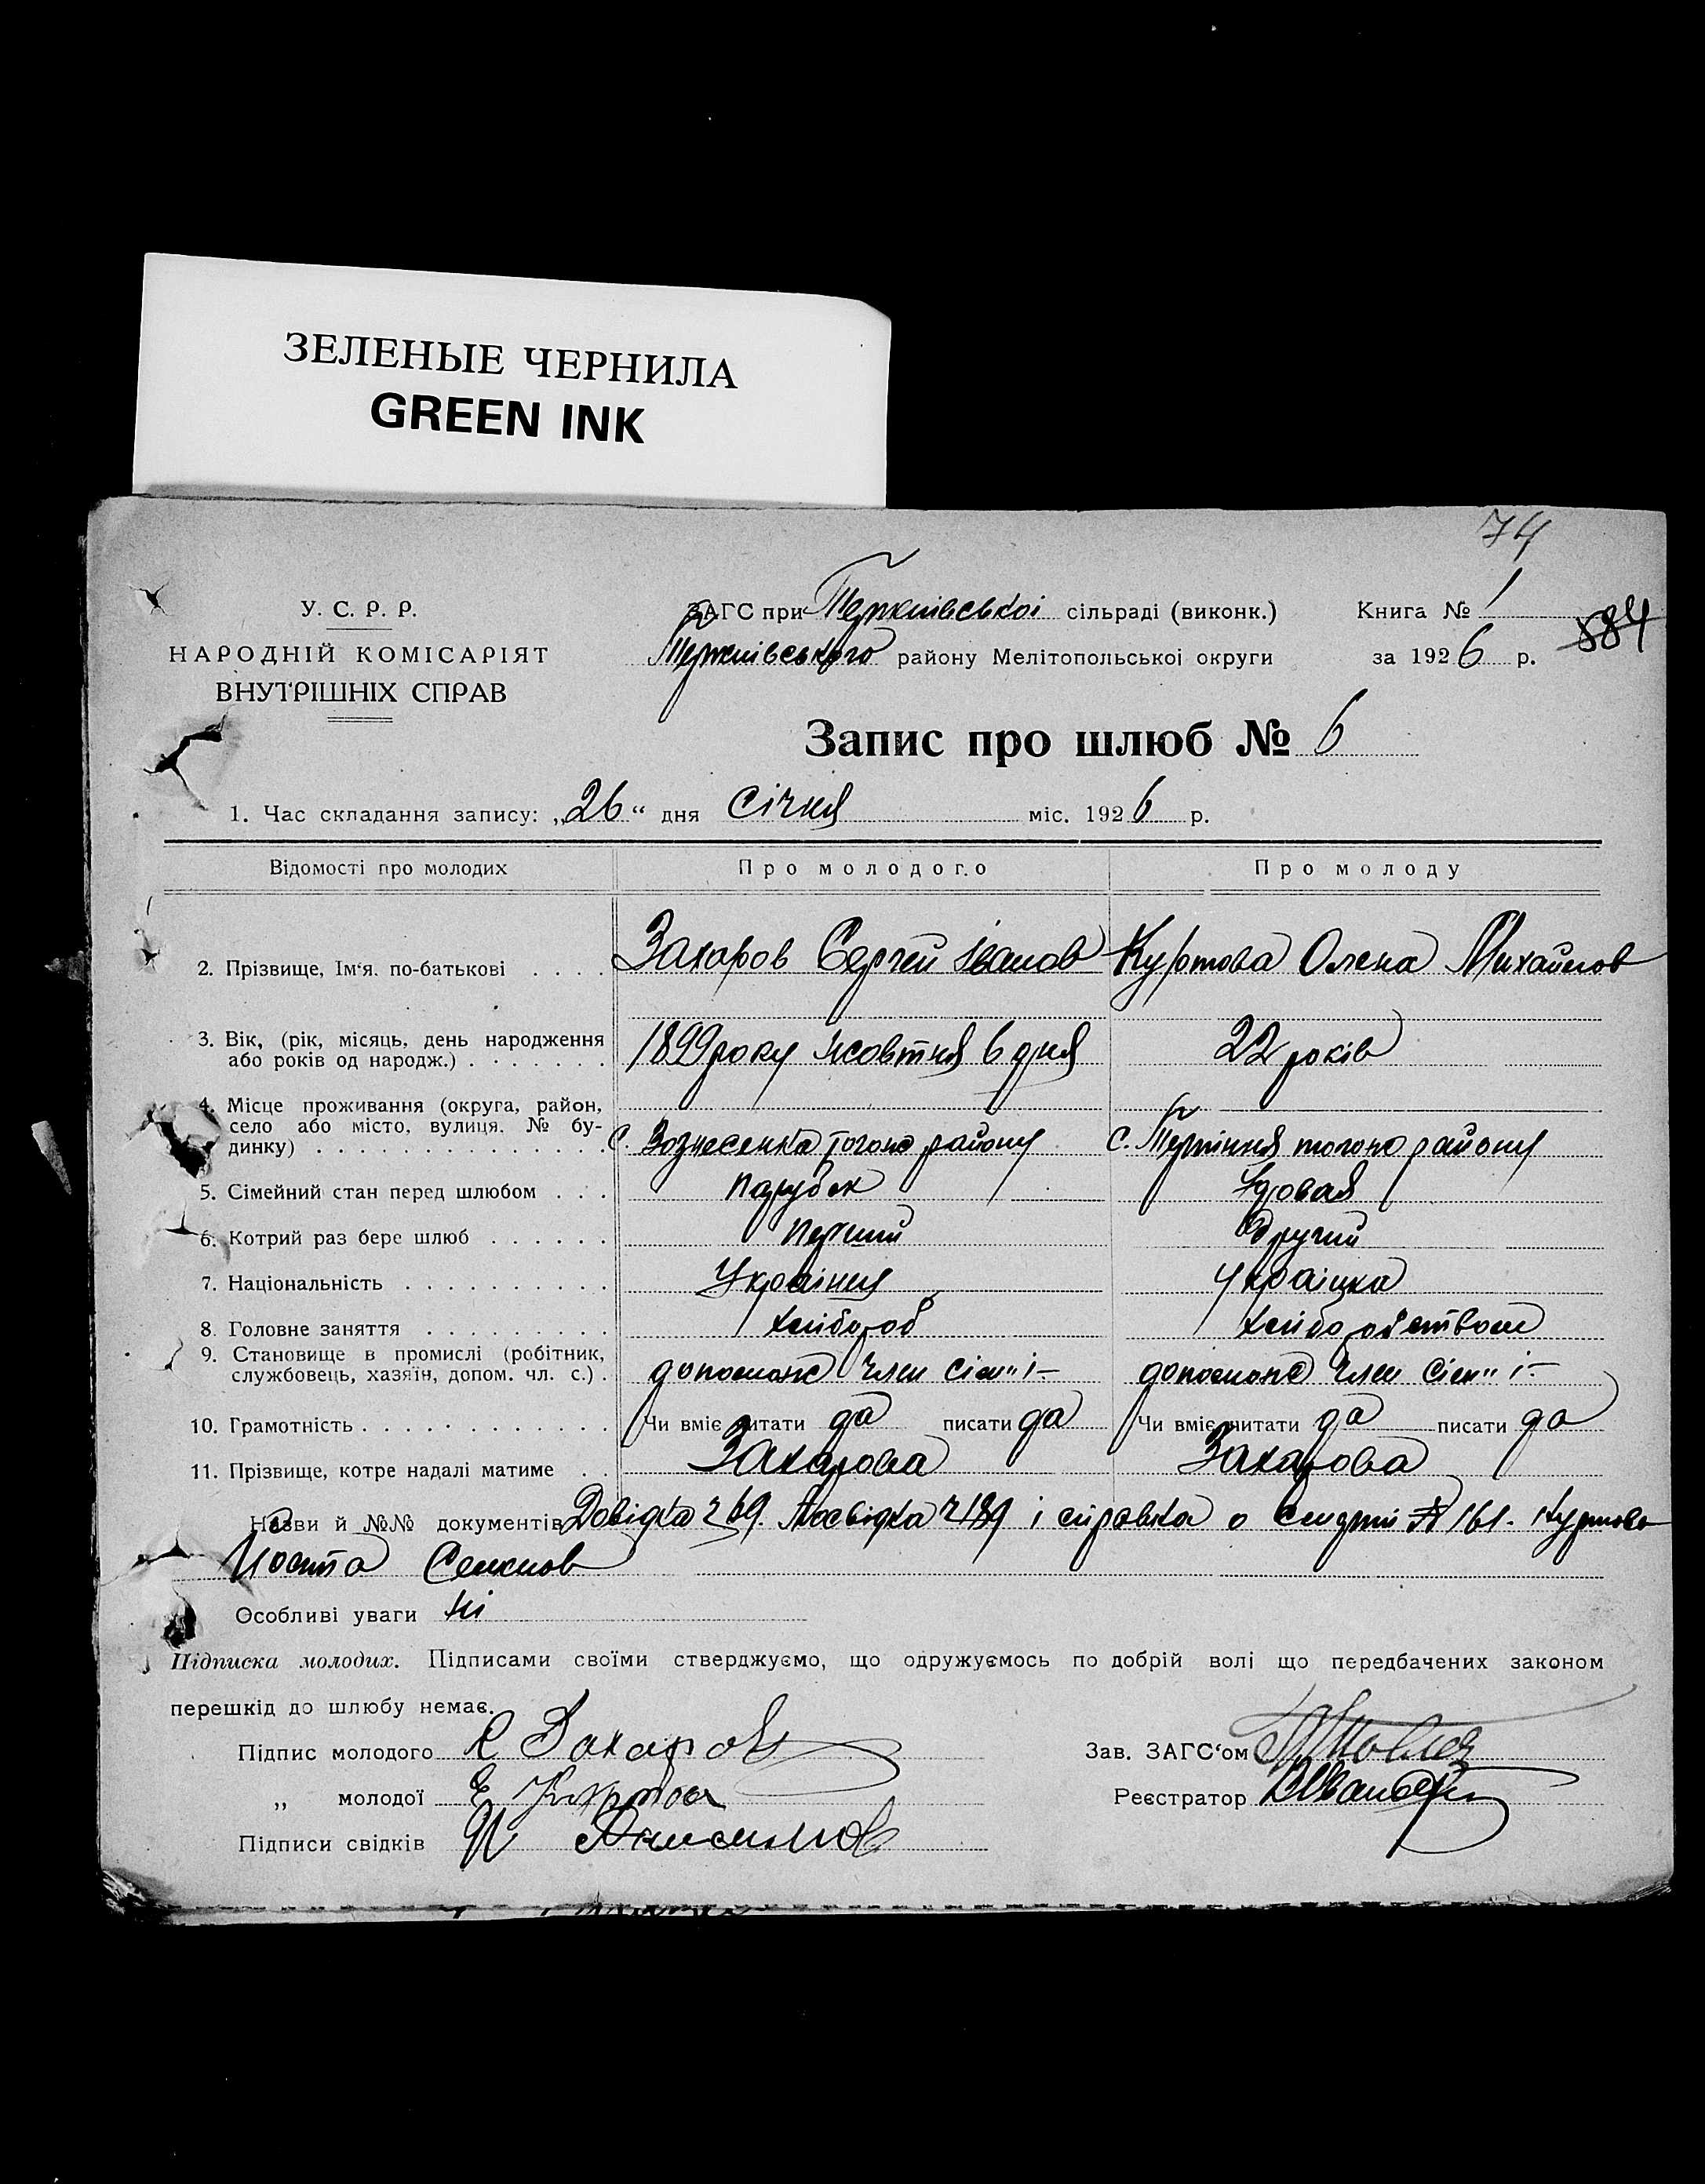 ЗЕЛЕНЫЕ ЧЕРНИЛА
GREEN INK
74
У. С. Р. Р.
НАРОДНІЙ КОМІСАРІЯТ
ВНУТРІШНІХ СПРАВ
ЗАГС при сільраді (виконк.) Книга № 1
884
району Мелітопольськоі округи за 1926 р.
Запис про шлюб № 6
1. Час складання запису: „26“ дня Січня міс. 1926 р.
Відомості про молодих Про молодого. Про молоду
2. Прізвище, Ім‘я. по-батькові Захаров Сергей Іванов Куртова Олена Михайлов
3. Вік, (рік, місяць, день народження
або років од народж.) 1899 року жовтня 6 дня 22 років
4. Місце проживання (округа, район,
село або місто, вулиця. № бу-
динку) с. Вознесенка тогож району с. тогож району
5. Сімейний стан перед шлюбом парубок Удовая
6. Котрий раз бере шлюб перший другий
7. Національність Украінец Украінка
8. Головне заняття хлібороб хліборобством
9. Становище в промислі (робітник,
службовець, хазяїн, допом. чл. с.) допоможе член сім"і- допоможе член сім"і-
10. Грамотність Чи вміє читати да писати да Чи вміє читати да писати да
11. Прізвище, котре надалі матиме Захарова Захарова
Назви й №№ документів Довідка 269. Посвідка 4189 і справка о смерти № 161. Куртова
Особливі уваги ні
Підписка молодих. Підписами своїми стверджуємо, що одружуємось по добрій волі що передбачених законом
перешкід до шлюбу немає.
Підпис молодого С Захаров Зав. ЗАГС‘ом
„ молодої Е Куртова Реєстратор
Підписи свідків